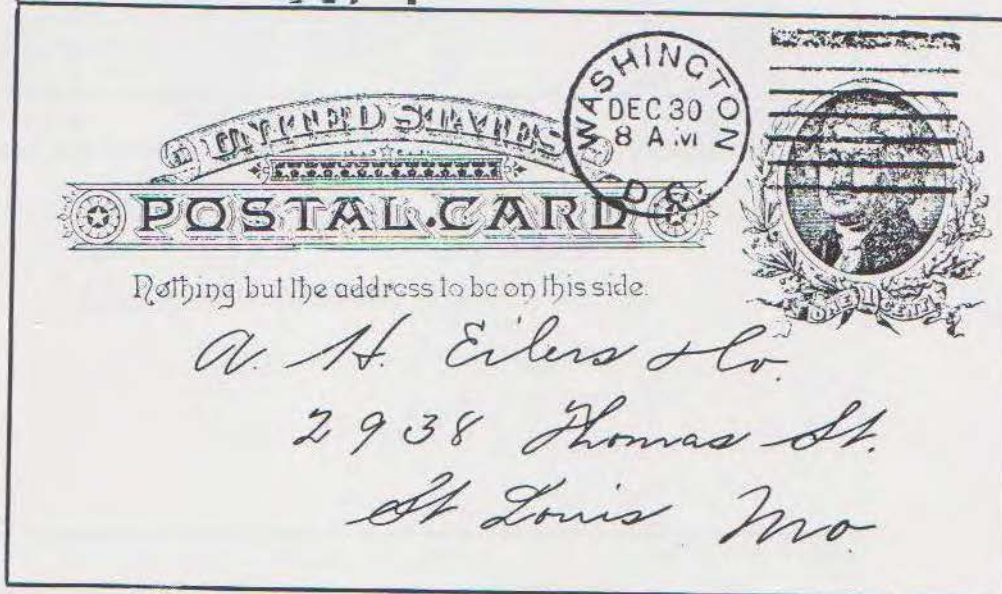 UNITED STATES
POSTAL.CARD
WASHINGTON
DEC 30
8 A M
D.C.
ONE 1 CENT
Nothing but the address to be on this side.
A. H. Eilers & Co.
2938 Thomas St.
St Louis Mo